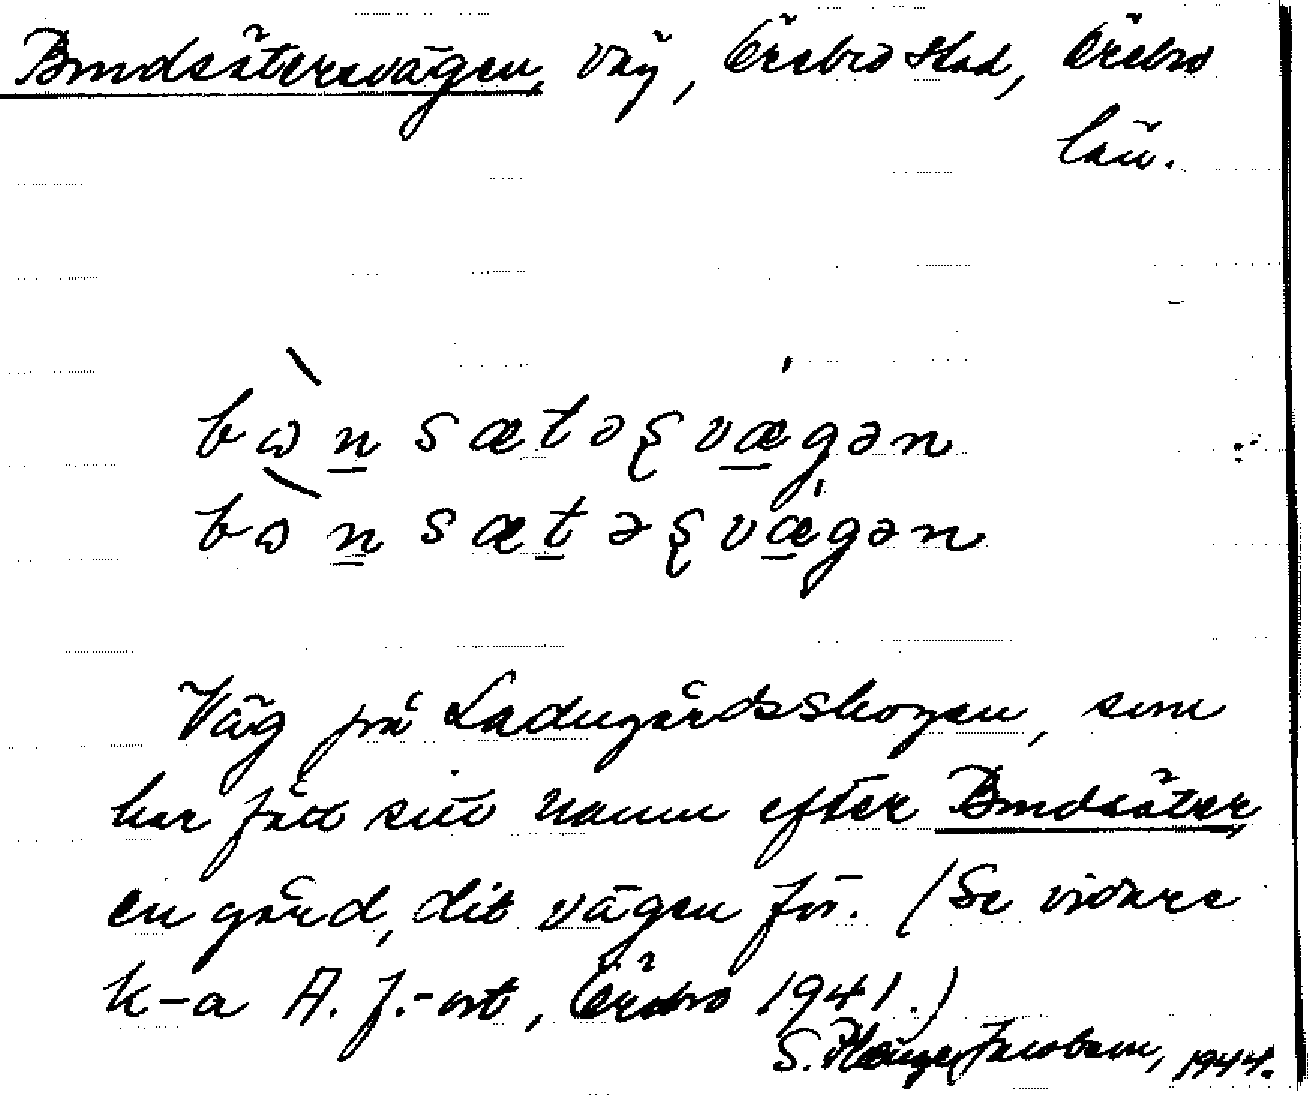 Bondsätersvägen, väg, Örebro stad, Örebro
län.
bɷ̀n sætəʂvǽgən
bɷ̀n sætəʂvǽgən
Väg på Ladugårdsskogen, som
har fått sitt namn efter Bondsäter,
en gård, dit vägen för. (Se vidare
k-a A. f.-ort, Örebro 1941.)
S. Jacobson, 1944.